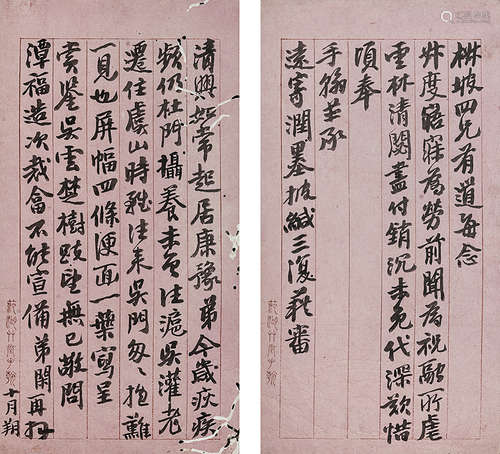 楙坡四兄有道每念
丰度寤寐為勞前聞為祝融所虐
雲林清閟盡付銷沉未免代深歎惜
頃奉
手翰并承
遠寄潤墨披緘三復藉審
清興如常起居康豫弟今歲疢疾
頻仍杜門攝養未克往滬吳灌老
遷住虞山時雖往來吳門匆匆極難
一見也屏幅四條便面一葉寫呈
賞鑒吳雲楚樹跂望無已敬問
潭福造次裁畣不能宣備弟閑再拜
十月朔